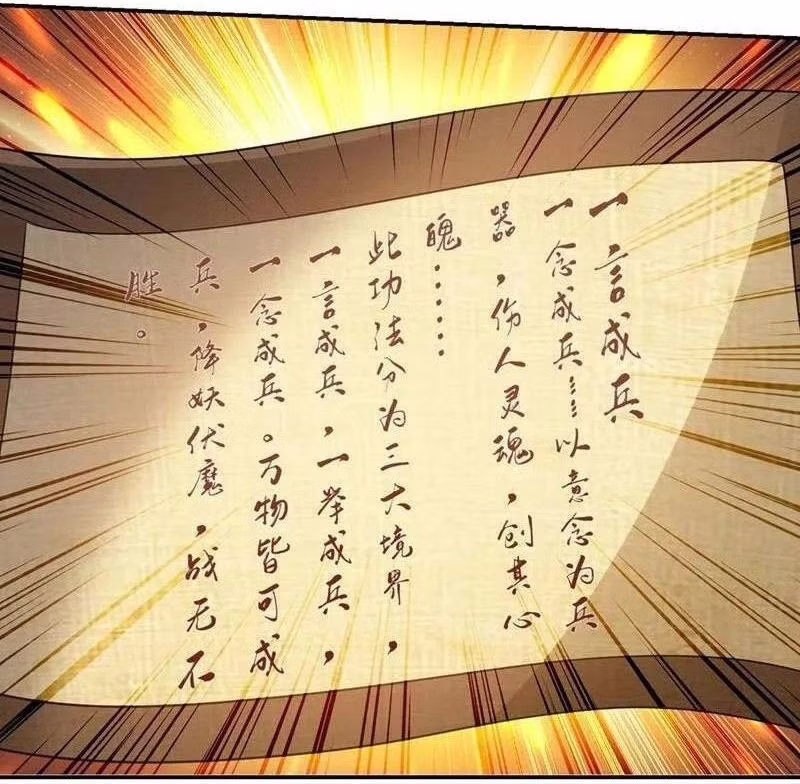 一言成兵
一念成兵……以意念为兵
器，伤人灵魂，创其心
魄……
此功法分为三大境界，
一言成兵，一举成兵，
一念成兵。万物皆可成
兵，降妖伏魔，战无不
胜。